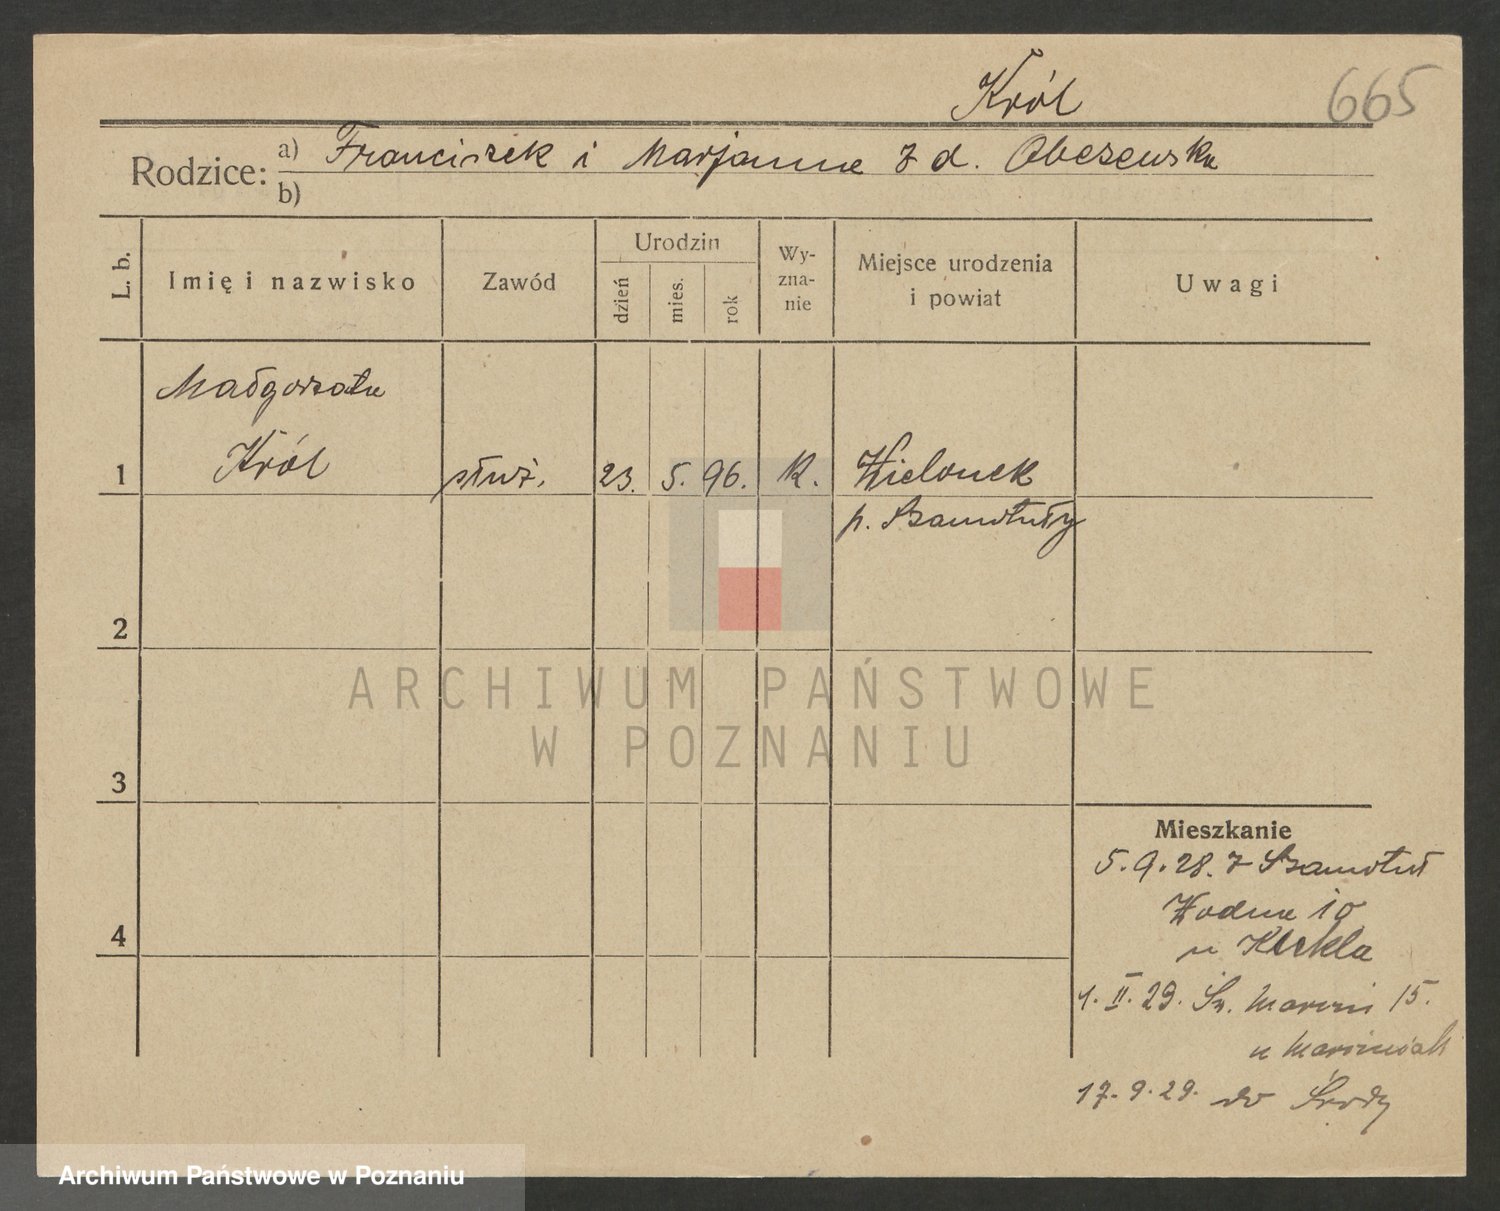 Król
665
Rodzice: a) Franciszek i Marjanna z d. Obezewska
b)
L. b.
Imię i nazwisko
Zawód
Urodzin
dzień
mies.
rok
Wy-
zna-
nie
Miejsce urodzenia
i powiat
Uwagi
Małgorzata
1 Król służ. 23. 5. 96. K. Wielonek
p. Szamotuły
2
3
4
Mieszkanie
5.9.28. z Szamotuł
Wodna 10
u
1. II. 29. Św. Marcin 15.
u
17.9.29. do Środy
ARCHIWUM PAŃSTWOWE
W POZNANIU
Archiwum Państwowe w Poznaniu